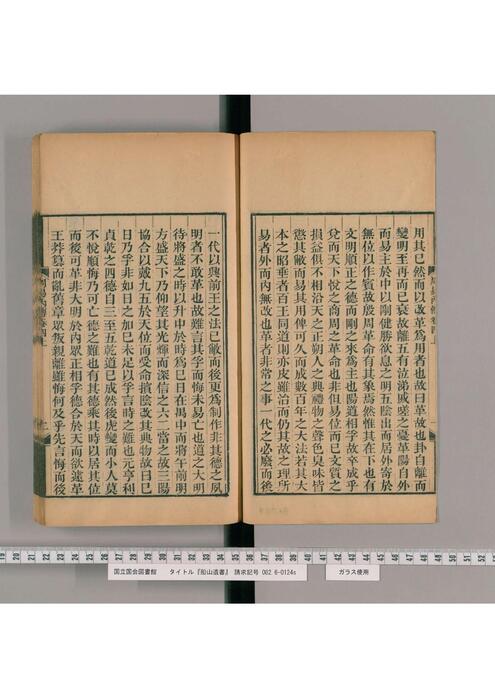 用其已然而以改革為用者也故曰革故也卦自離而
變明至再而已衰故離五有泣涕戚嗟之憂革陽自外
而易主於中以剛健勝欲息之明五陰出而居外寄於
無位以作賓故殷周革命有其象焉然惟其在下也有
文明順正之德而剛之來為主也陽道相孚故卒成乎
兌而天下悅之商周之革命也非但易位而已文質之
損益俱不相沿天之正朔人之典禮物之聲色臭味皆
懲其敝而易其用俾可久而成數百年之大法若其大
本之昭垂者百王同道則亦皮雖治而仍其故之理所
易者外而內無改也革者非常之事一代之必廢而後
一代以興前王之法已敝而後更為制作非其德之夙
明者不敢革也故難言其孚而悔未易亡也道之大明
待將盛之時以升中於時為巳日在禺中而將午前明
方盛天下乃仰望其光輝而深信之六二當之故三陽
協合以戴九五於天位而受命擯陰改其典物故曰巳
日乃孚非如日之加巳未足以孚言時之難也元亨利
貞乾之四德自三至五乾道已成然後虎變而小人莫
不悅順悔乃可亡德之難也有其德乘其時以居其位
而後可革非大明於內眾正相孚德合於天而欲遽革
王莽篡而亂舊章眾叛親離雖悔何及乎先言悔而後
周易內傳卷四
國立国会図書館 タイトル『船山遺書』 請求記号 082.6-0124s
ガラス使用
19 20 21 22 23 24 25 26 27 28 29 30 31 32 33 34 35 36 37 38 39 40 42 43 44 45 46 47 48 49 50 51 52